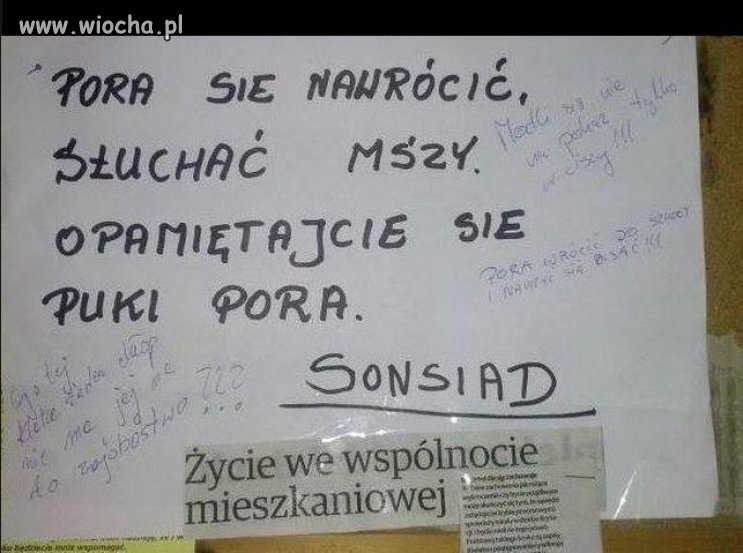 www.wiocha.pl
PORA SIE NAWRÓCIĆ,
SŁUCHAĆ MSZY.
OPAMIĘTAJCIE SIE
PUKI PORA.
SONSIAD
Modli się nie
na pokaz tylko
w ciszy!!!
PORA WRÓCIĆ DO SZKOŁY
I NAUCZYĆ SIĘ PISAĆ!!!
nie ma jej na
to
Życie we wspólnocie
mieszkaniowej